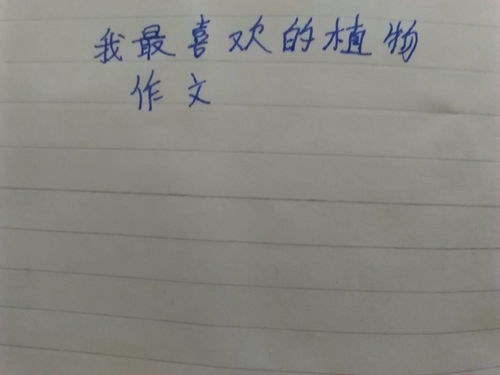 我最喜欢的植物
作文